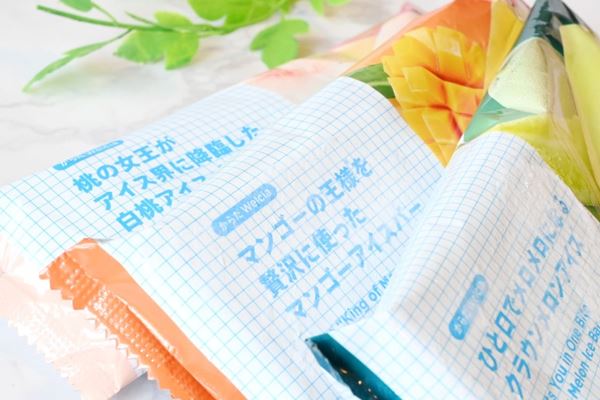 桃の女王が
アイス界に降臨した
白桃アイス
からだWelcia
マンゴーの王様を
贅沢に使った
マンゴーアイスバー
"King of M
ひと口でメロメロになる
クラウンメロンアイス
s You in One Bite"
Melon Ice Ba